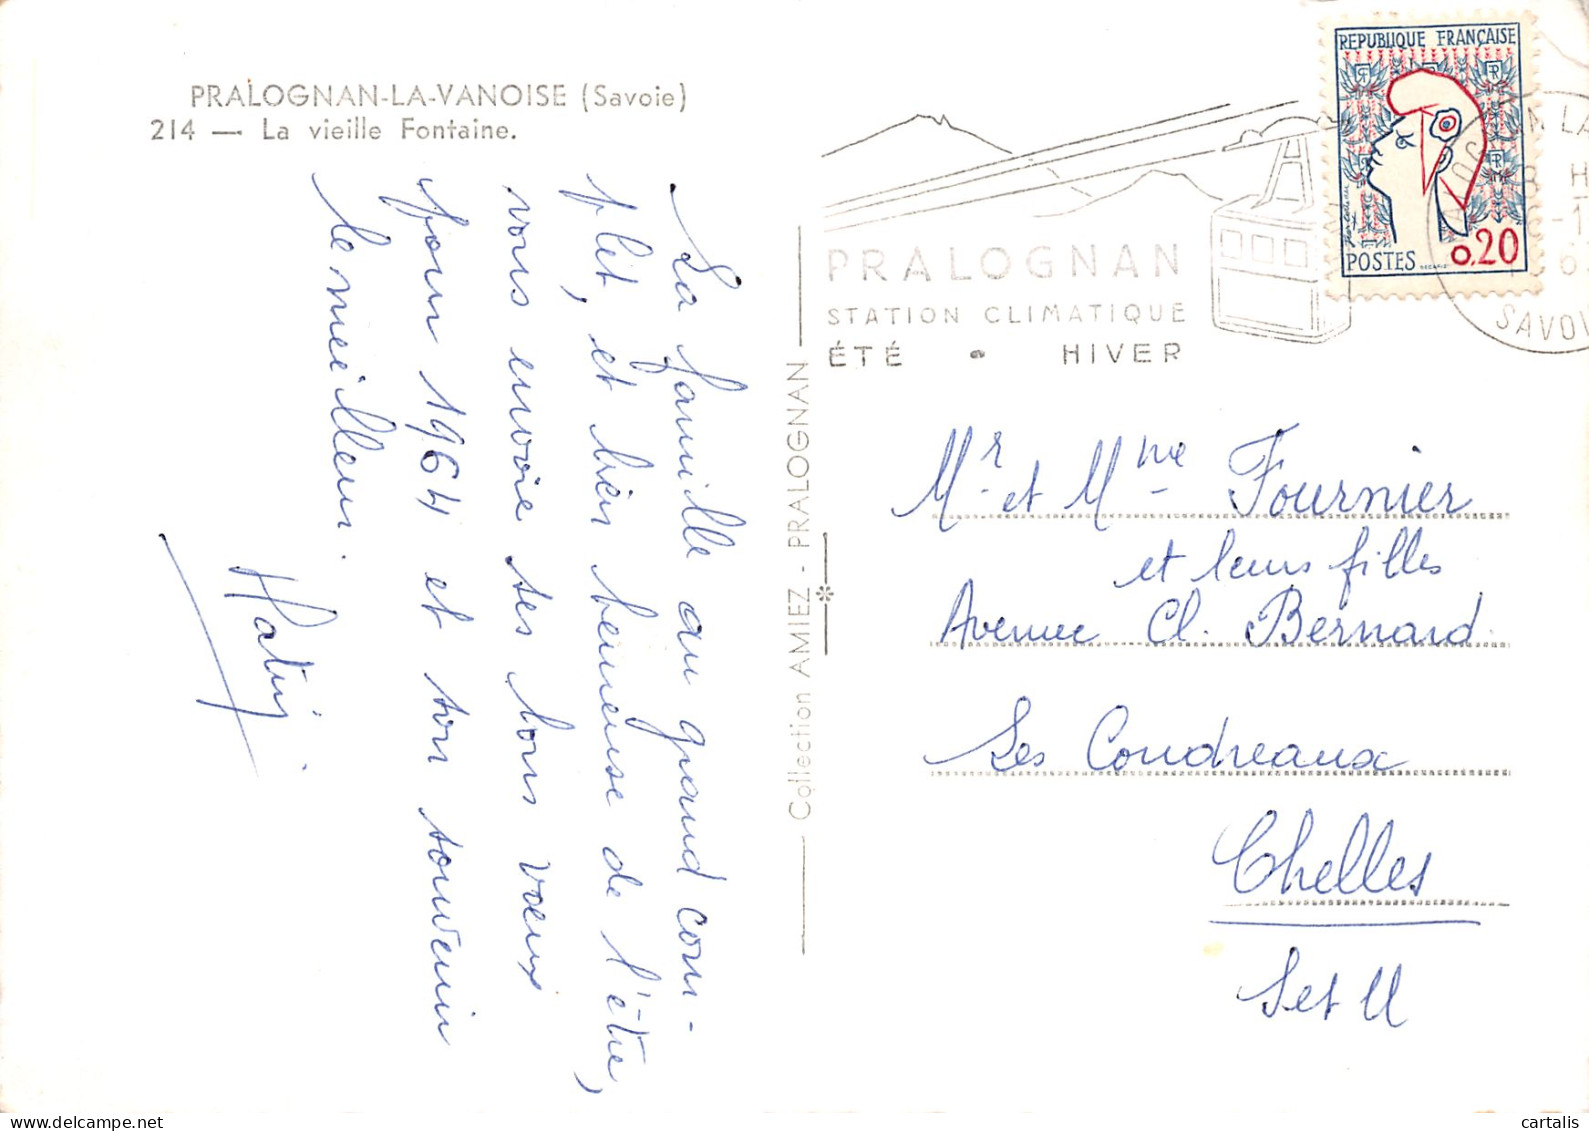 PRALOGNAN-LA-VANOISE (Savoie)
214 — La vieille Fontaine.
La famille au grand com-
plet, et bien heureuse de l'être,
vous envoie ses bons voeux
pour 1964 et son souvenir
le meilleur.
Collection AMIEZ - PRALOGNAN
PRALOGNAN
STATION CLIMATIQUE
ÉTÉ • HIVER
REPUBLIQUE FRANÇAISE
POSTES 0,20
SAVOI
Mr et Mme Fournier
et leurs filles
Avenue Cl. Bernard
Les Coudreaux
Chelles
S et M
cartalis